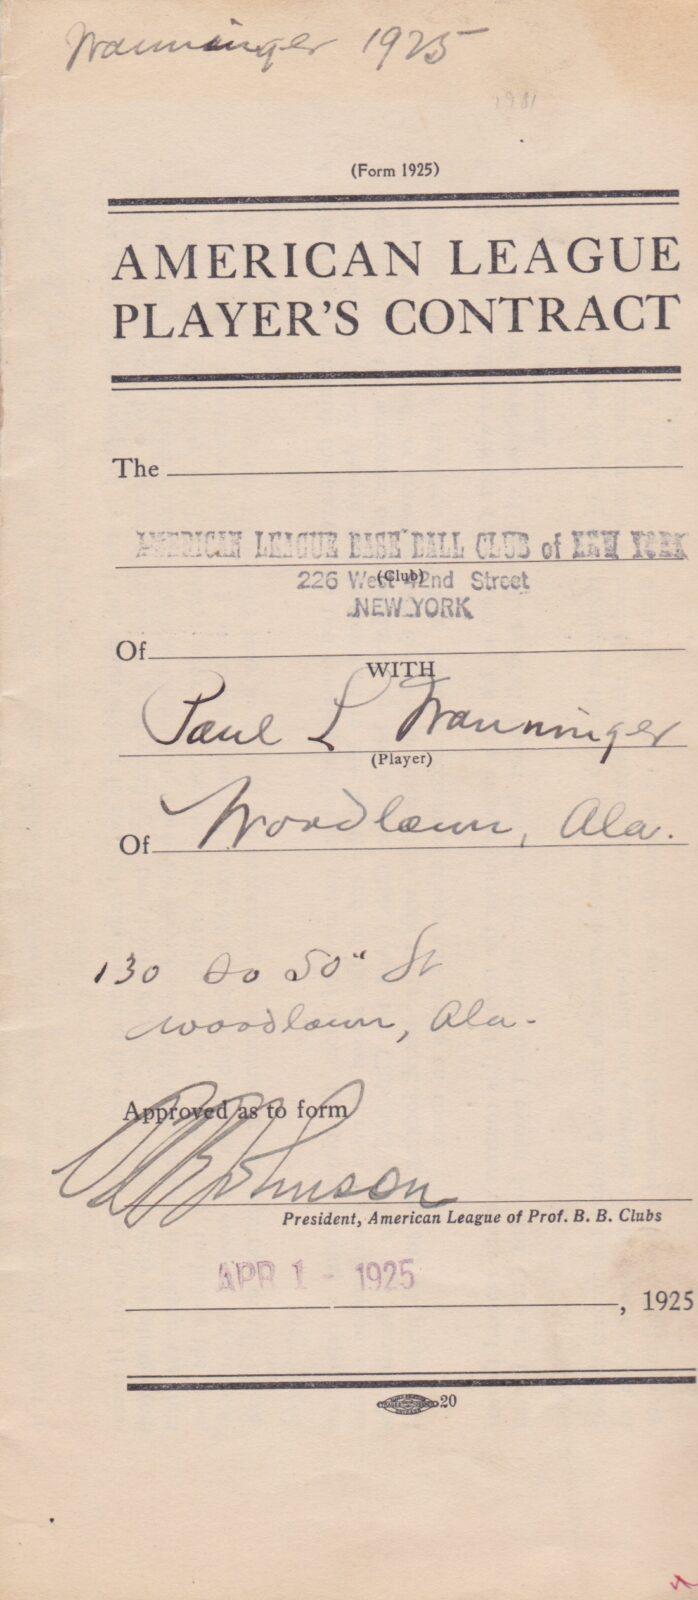 Wanninger 1925
1981
(Form 1925)
AMERICAN LEAGUE
PLAYER'S CONTRACT
The
AMERICAN LEAGUE BASE BALL CLUB of NEW YORK
(Club)
226 West 42nd Street
NEW YORK
Of
WITH
Paul L Wanninger
(Player)
Of Woodlawn, Ala.
130 So 50" St
Woodlawn, Ala-
Approved as to form
B B Johnson
President, American League of Prof. B. B. Clubs
APR 1 - 1925
, 1925
20